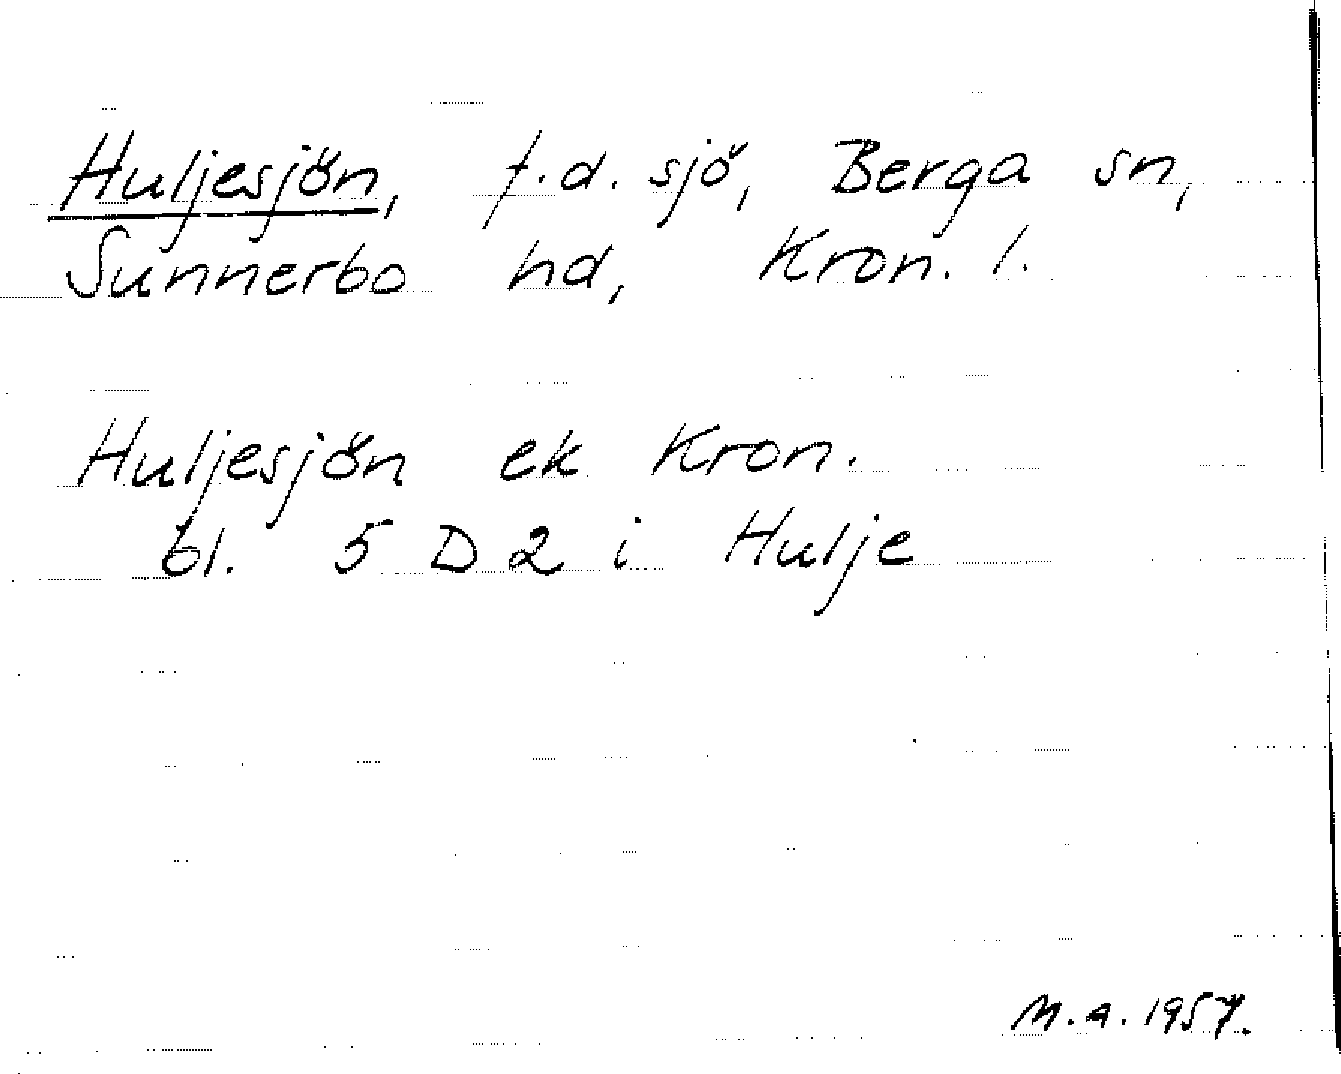 Huljesjön, f.d. sjö, Berga sn,
Sunnerbo hd, Kron. l.
Huljesjön ek Kron.
bl. 5 D 2 i Hulje
M.A. 1957.